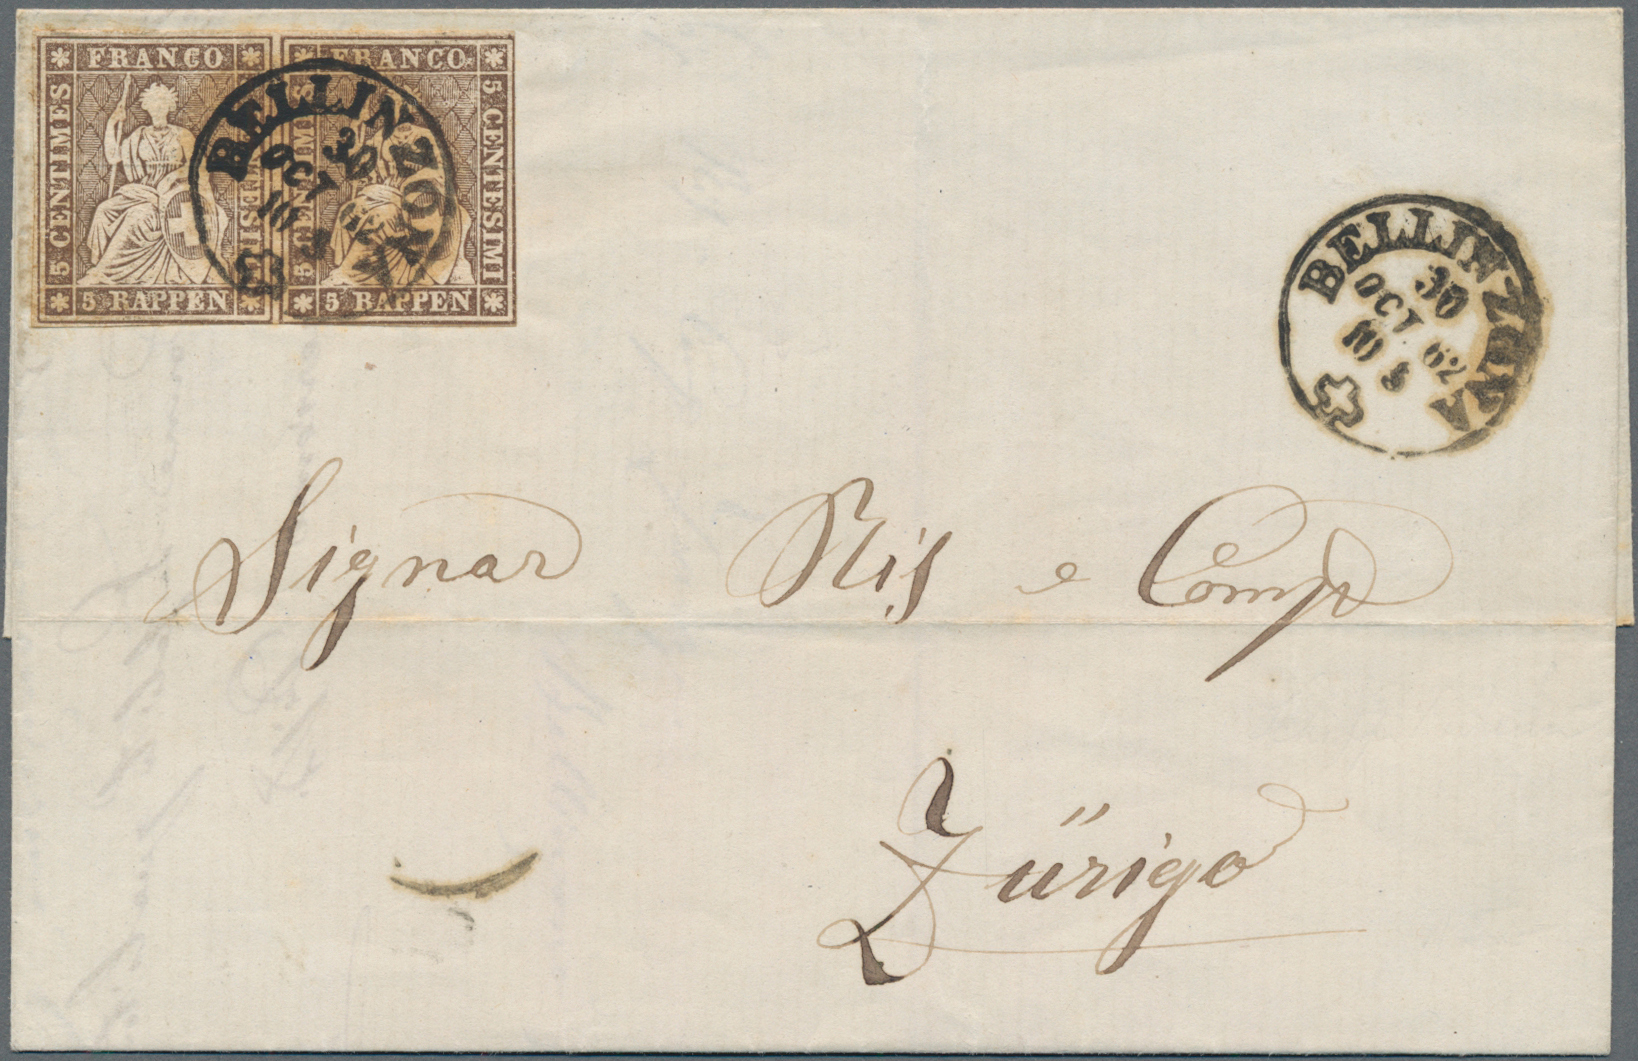 FRANCO
5 CENTIMES
5 RAPPEN
FRANCO
5 CENTIMES
5 CENTESIMI
5 RAPPEN
BELLINZONA
30
OCT 62
10 S
BELLINZONA
30
OCT 62
10 S
Signor e Comp
Zürigo